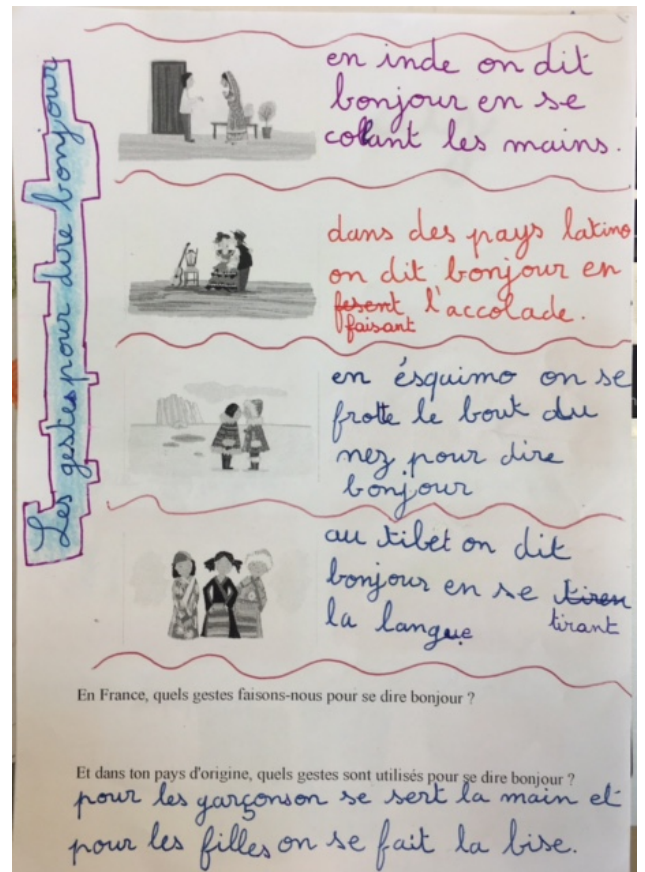 Les gestes pour dire bonjour
en inde on dit
bonjour en se
colant les mains.
dans des pays latino
on dit bonjour en
fesent l'accolade.
faisant
en ésquimo on se
frotte le bout du
nez pour dire
bonjour
au tibet on dit
bonjour en se tiren
la langue tirant
En France, quels gestes faisons-nous pour se dire bonjour ?
Et dans ton pays d'origine, quels gestes sont utilisés pour se dire bonjour ?
pour les garçons on se sert la main et
pour les filles on se fait la bise.